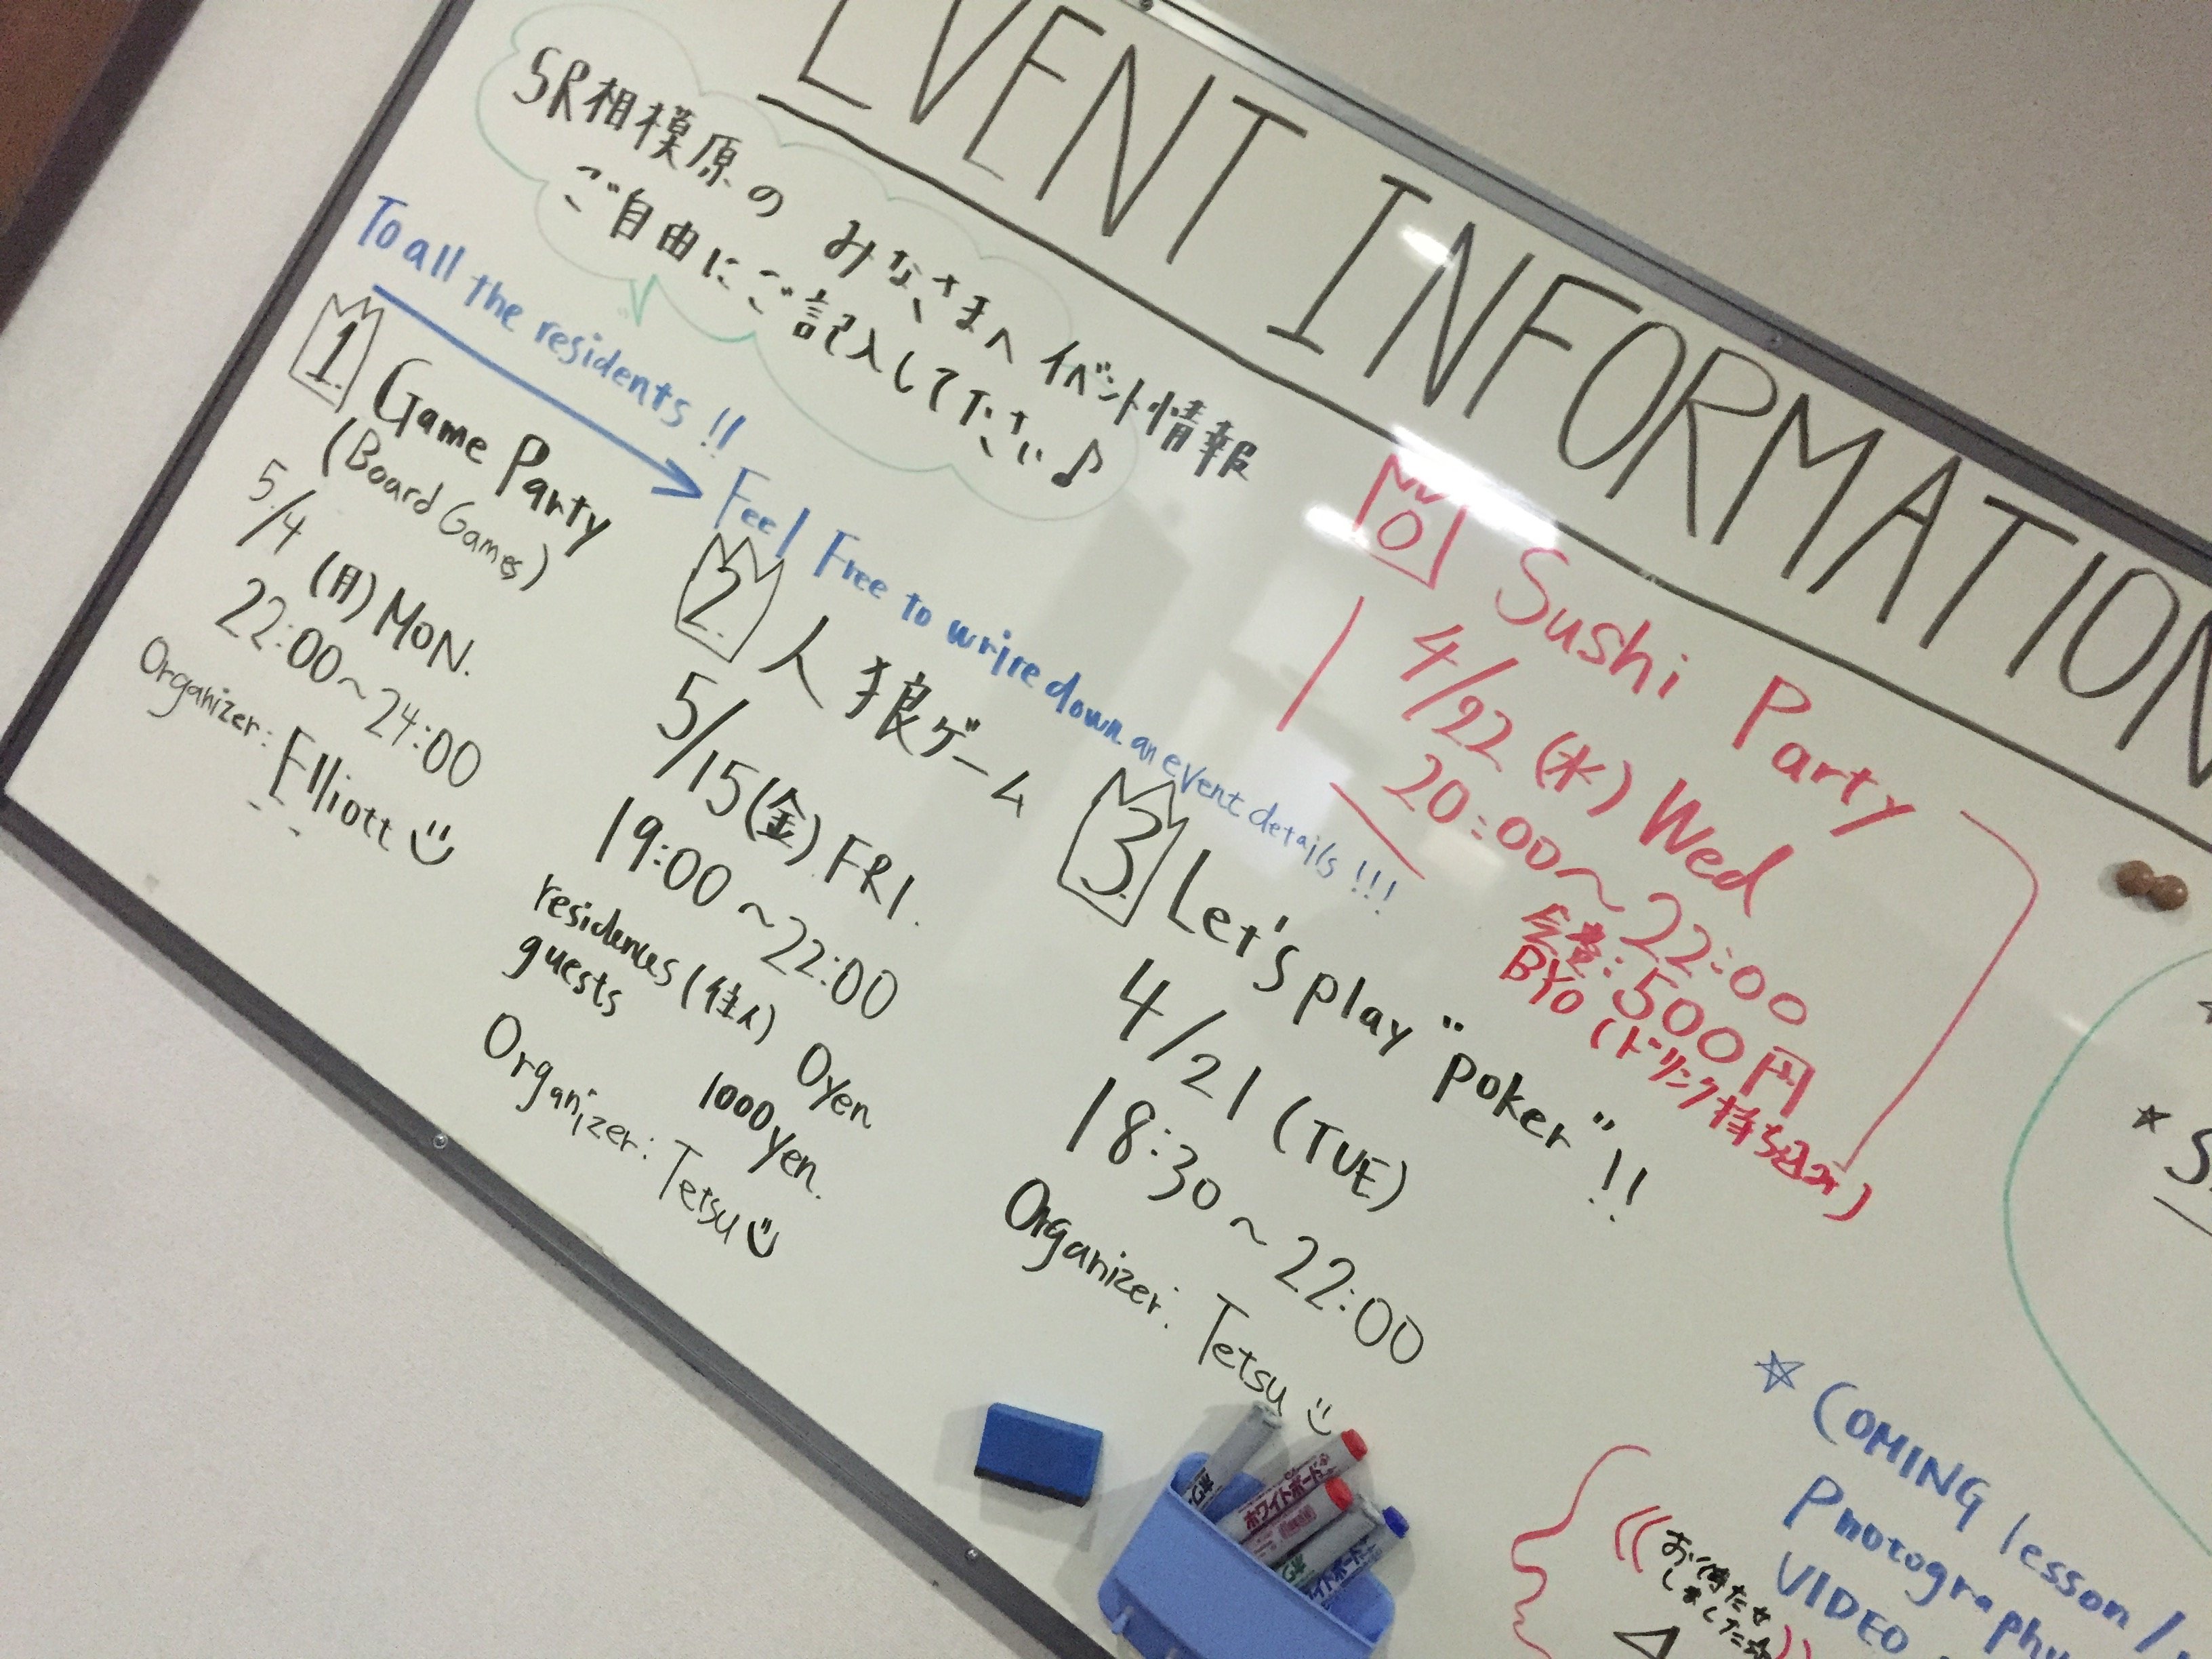 EVENT INFORMATION
SR相模原の みなさまへ イベント情報
ご自由にご記入して下さい♪
To all the residents !!
Feel Free to wrire down an event details !!!
1.
Game Party
(Board Games)
5/4 (月) MON.
22:00~24:00
Organizer: Elliott
2.
人狼ゲーム
5/15(金) FRI.
19:00~22:00
(住人) 0yen
guests 1000yen.
Organizer: Tetsu
3.
Let's play "poker"!!
4/21 (TUE)
18:30~22:00
Organizer: Tetsu
0
Sushi Party
4/22 (水) Wed
20:00~22:00
会費:500円
BYO (ドリンク持ち込み)
☆ COMING lesson/
Photography
VIDEO
お待たせ
しました
ホワイトボード